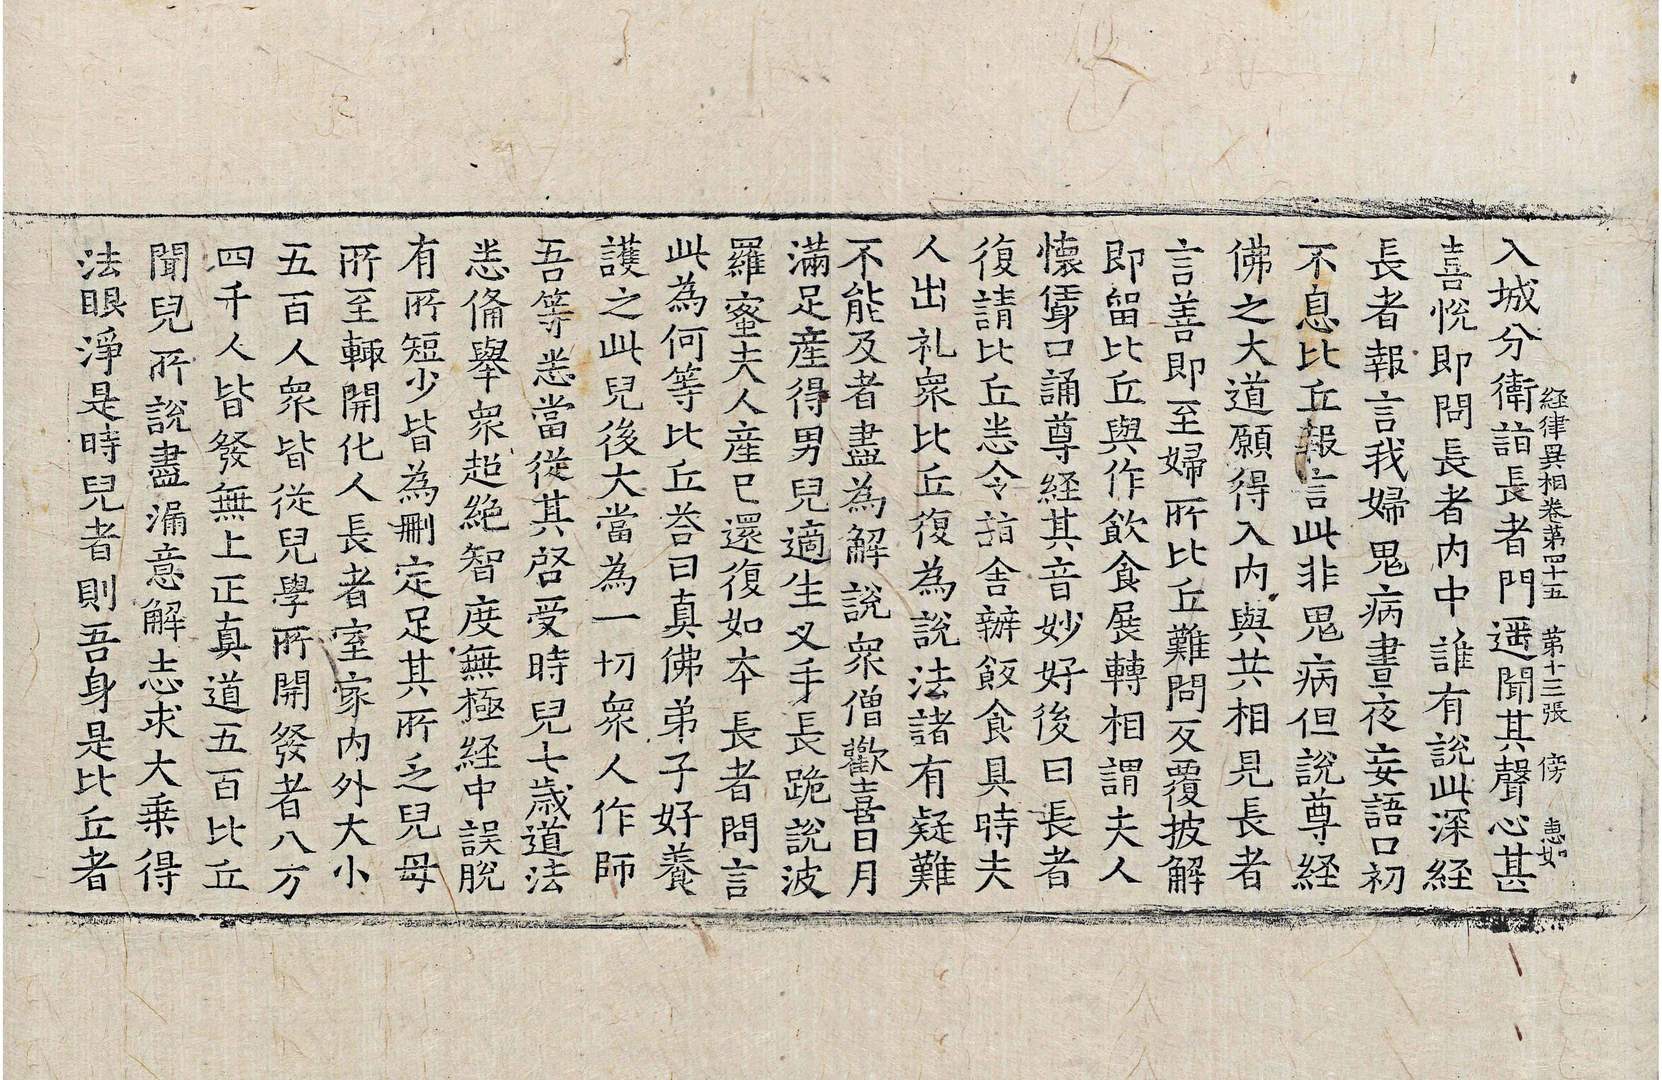 経律異相卷第四十五 第十三張 傍 惠如
入城分衛詣長者門遥聞其聲心甚
喜悅即問長者內中誰有說此深経
長者報言我婦鬼病晝夜妄語口初
不息比丘報言此非鬼病但說尊経
佛之大道願得入內與共相見長者
言善即至婦所比丘難問反覆披解
即留比丘與作飲食展轉相謂夫人
懷妊口誦尊経其音妙好後日長者
復請比丘悉令詣舍辦飯食具時夫
人出礼衆比丘復為說法諸有疑難
不能及者盡為解說衆僧歡喜日月
滿足產得男兒適生叉手長跪說波
羅蜜夫人產已還復如本長者問言
此為何等比丘荅曰真佛弟子好養
護之此兒後大當為一切衆人作師
吾等悉當從其啓受時兒七歳道法
悉俻舉衆超絶智度無極経中誤脫
有所短少皆為刪定足其所乏兒母
所至輙開化人長者室家內外大小
五百人衆皆從兒學所開發者八万
四千人皆發無上正真道五百比丘
聞兒所說盡漏意解志求大乗得
法眼淨是時兒者則吾身是比丘者